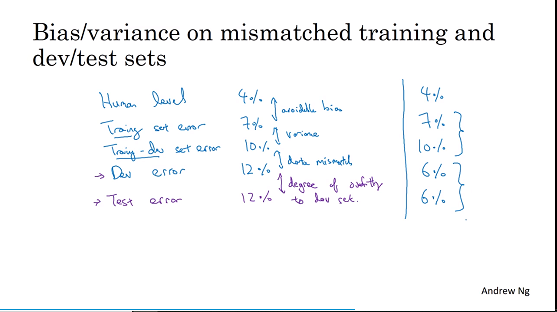 Bias/variance on mismatched training and
dev/test sets
Human level 4% 4%
avoidable bias
Training set error 7% 7%
variance
Training-dev set error 10% 10%
data mismatch
→ Dev error 12% 6%
degree of overfitting
→ Test error 12% to dev set. 6%
Andrew Ng